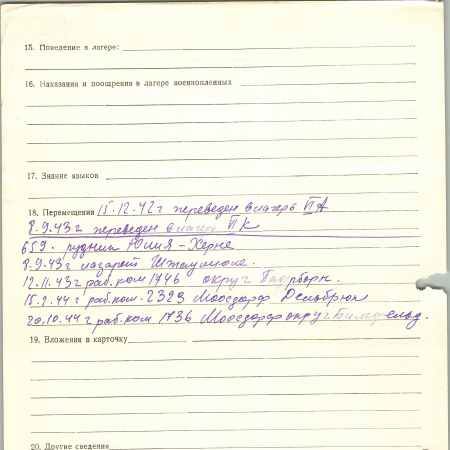 15. Поведение в лагере:
16. Наказания и поощрения в лагере военнопленных
17. Знание языков
18. Перемещения 15.12.42 г переведен в лагерь VI А
8.9.43 г переведен в лагерь VI К
659. рудник Юлия - Херне
8.9.43 г лазарет
12.11.43 г раб. ком 1746 округ Падерборн.
15.2.44 г раб. ком. 2323 Моосдорф
20.10.44 г раб. ком 1736 Моосдорф округ Билефельд.
19. Вложения в карточку
20. Другие сведения